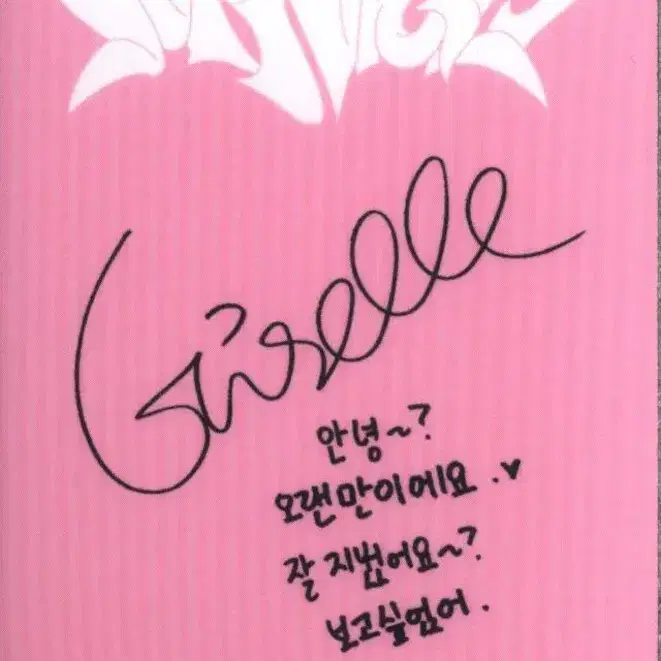 Giselle
안녕~?
오랜만이에요 .♥
잘 지냈어요~?
보고싶었어.